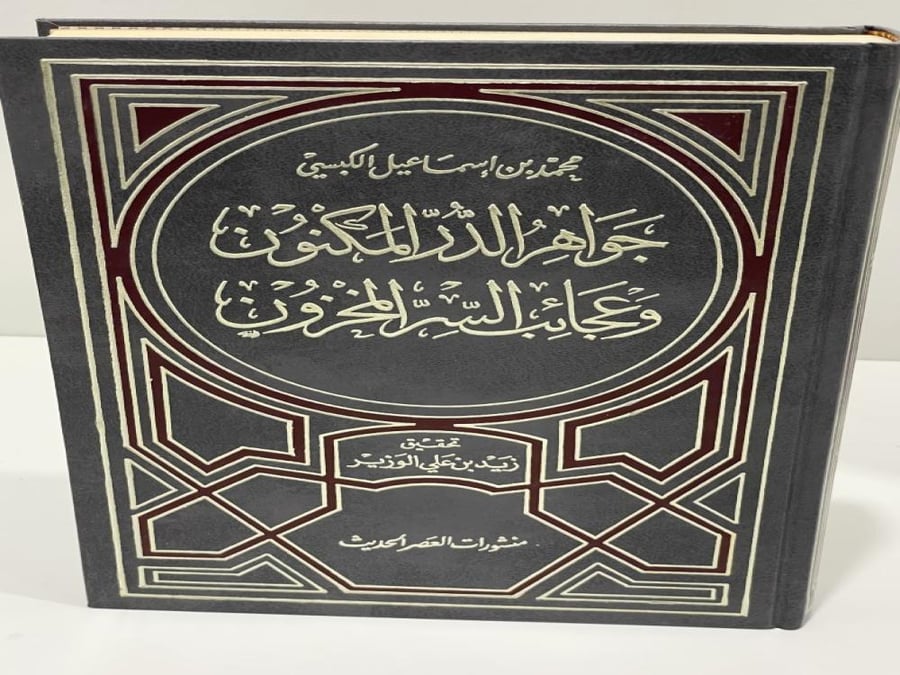 محمد بن إسماعيل الكبسي
جَوَاهِرُ الدُّرِّ المَكْنُون
وَعَجَائِبُ السِّرِّ المَخْزُونِ
تحقيق
زيد بن علي الوزير
منشورات العصر الحديث